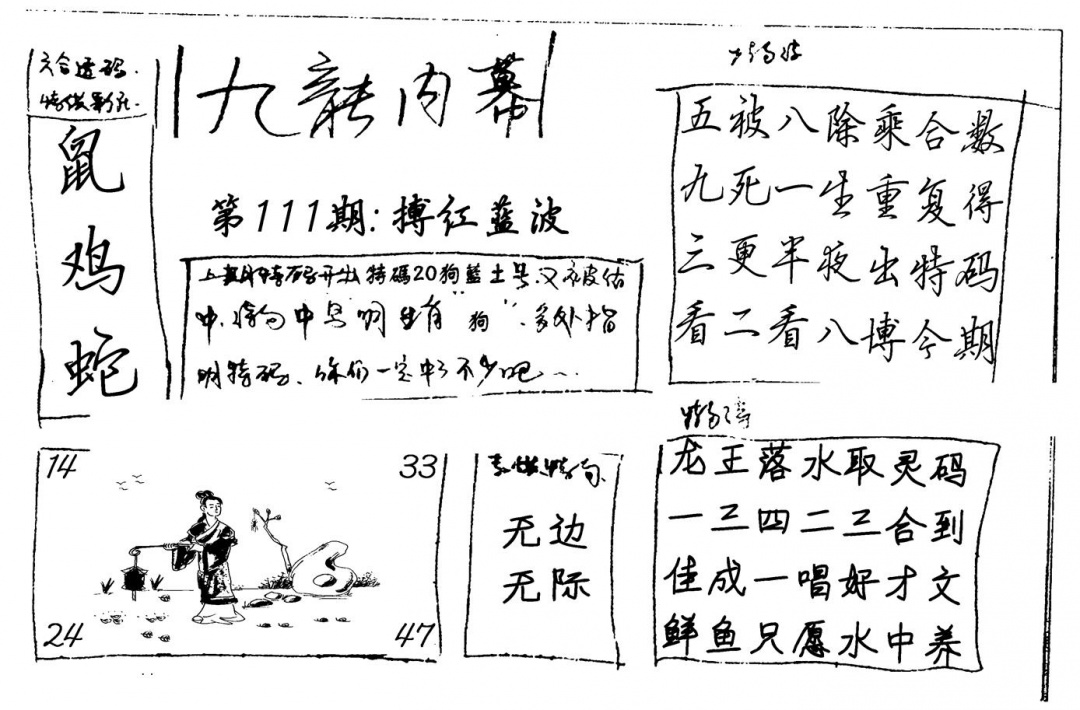 六合透码
鼠
鸡
蛇
九龍内幕
第111期:搏红蓝波
上期特码开出特碼20狗藍土号又被估
中 中号明生肖“狗”.多处指
明特码.你们一定中了不少吧
五被八除乘合数
九死一生重复得
三更半夜出特码
看二看八博今期
14
33
24
47
无边
无际
龙王落水取灵码
一三四二三合到
佳成一唱好才文
鲜鱼只愿水中养